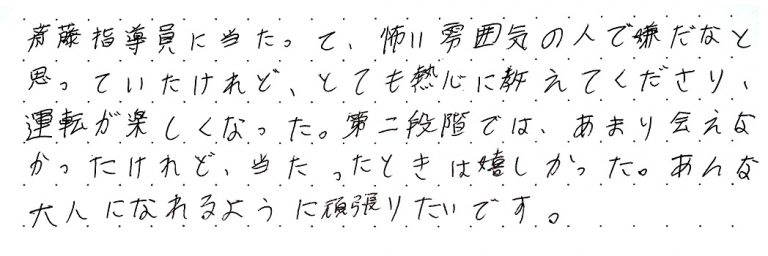 斉藤指導員に当たって、怖い雰囲気の人で嫌だなと
思っていたけれど、とても熱心に教えてくださり、
運転が楽しくなった。第二段階では、あまり会えな
かったけれど、当たったときは嬉しかった。あんな
大人になれるように頑張りたいです。